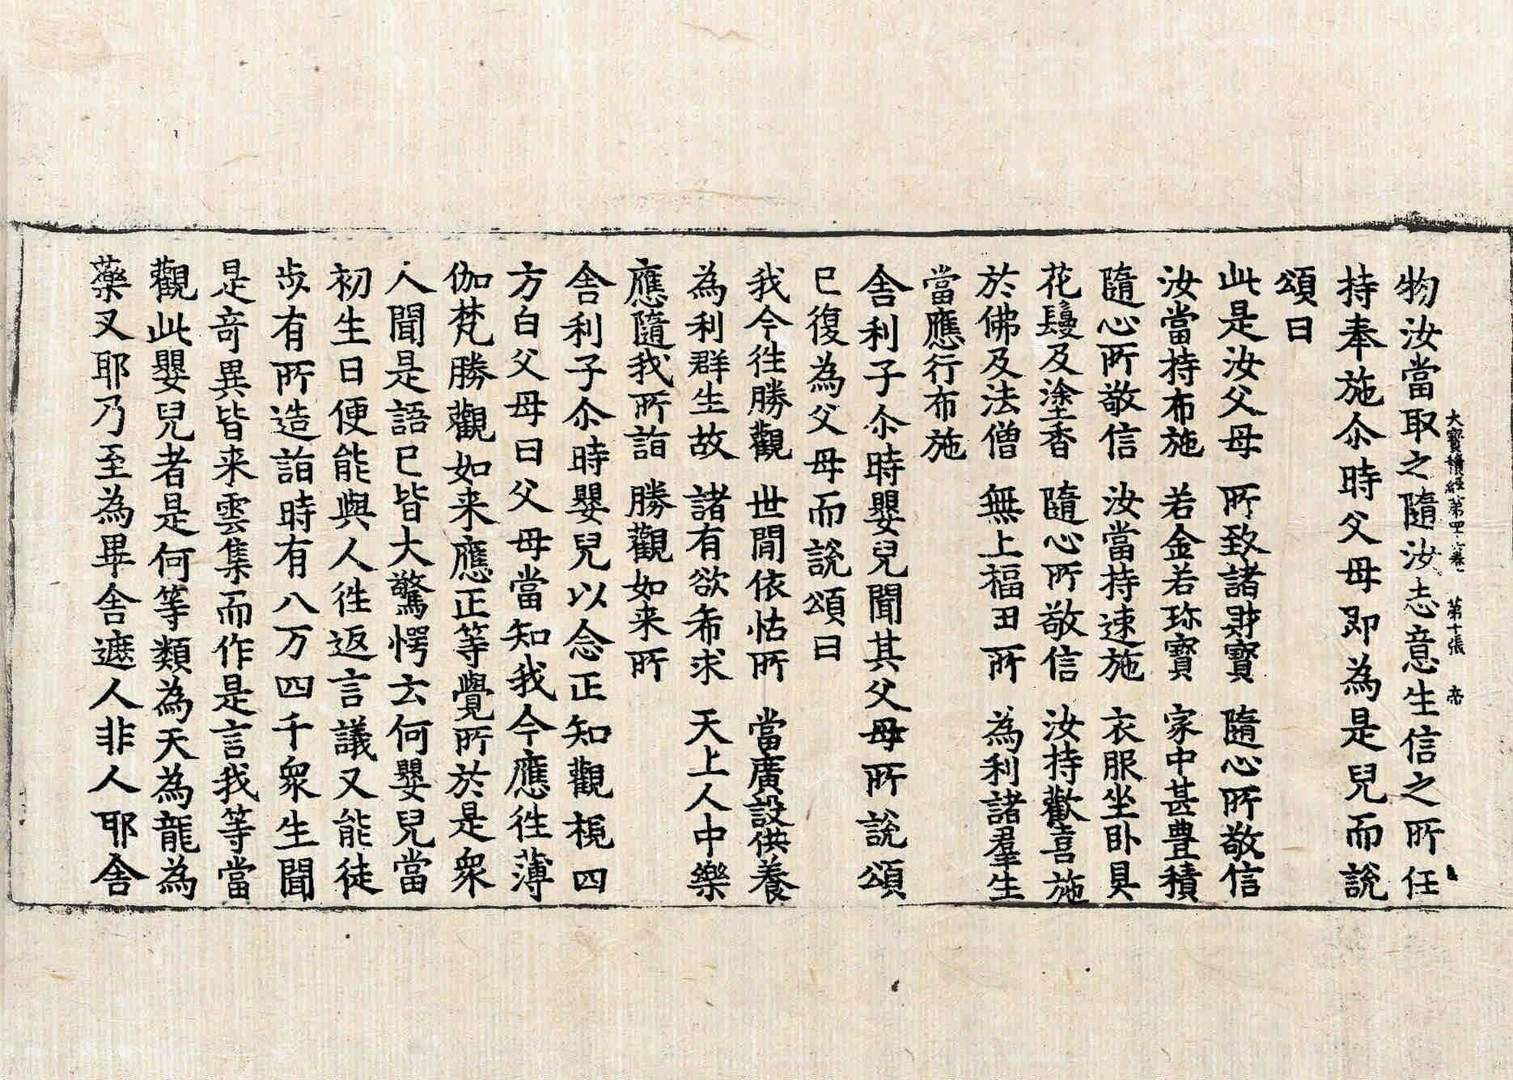 大寶積經第四十六卷 第十張 帝
物汝當取之隨汝志意生信之所任
持奉施尒時父母即為是兒而說
頌曰
此是汝父母 所致諸財寶 隨心所敬信
汝當持布施 若金若珎寶 家中甚豊積
隨心所敬信 汝當持速施 衣服坐卧具
花鬘及塗香 隨心所敬信 汝持歡喜施
於佛及法僧 無上福田所 為利諸羣生
當應行布施
舎利子尒時嬰兒聞其父母所說頌
已復為父母而說頌曰
我今徃勝觀 世間依怙所 當廣設供養
為利群生故 諸有欲希求 天上人中樂
應隨我所詣 勝觀如来所
舎利子尒時嬰兒以念正知觀梘四
方白父母曰父母當知我今應徃薄
伽梵勝觀如来應正等覺所於是衆
人聞是語已皆大驚愕云何嬰兒當
初生日便能與人徃返言議又能徒
歩有所造詣時有八万四千衆生聞
是竒異皆来雲集而作是言我等當
觀此嬰兒者是何等類為天為龍為
藥叉耶乃至為畢舎遮人非人耶舎